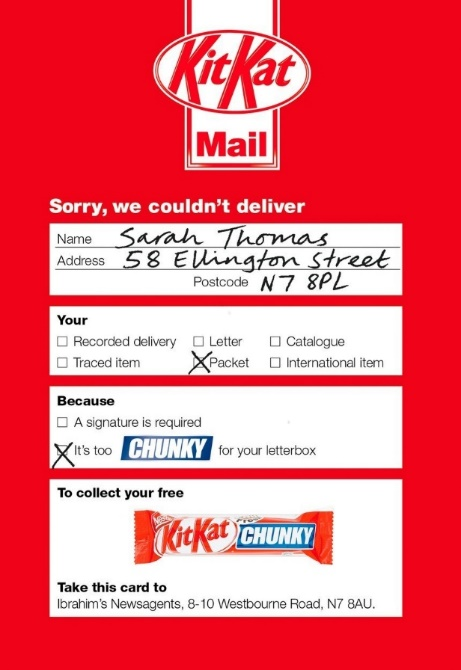 KitKat
Mail
Sorry, we couldn't deliver
Name Sarah Thomas
Address 58 Ellington Street
Postcode N7 8PL
Your
Recorded delivery Letter Catalogue
Traced item Packet International item
Because
A signature is required
It's too CHUNKY for your letterbox
To collect your free
KitKat CHUNKY
Take this card to
Ibrahim's Newsagents, 8-10 Westbourne Road, N7 8AU.